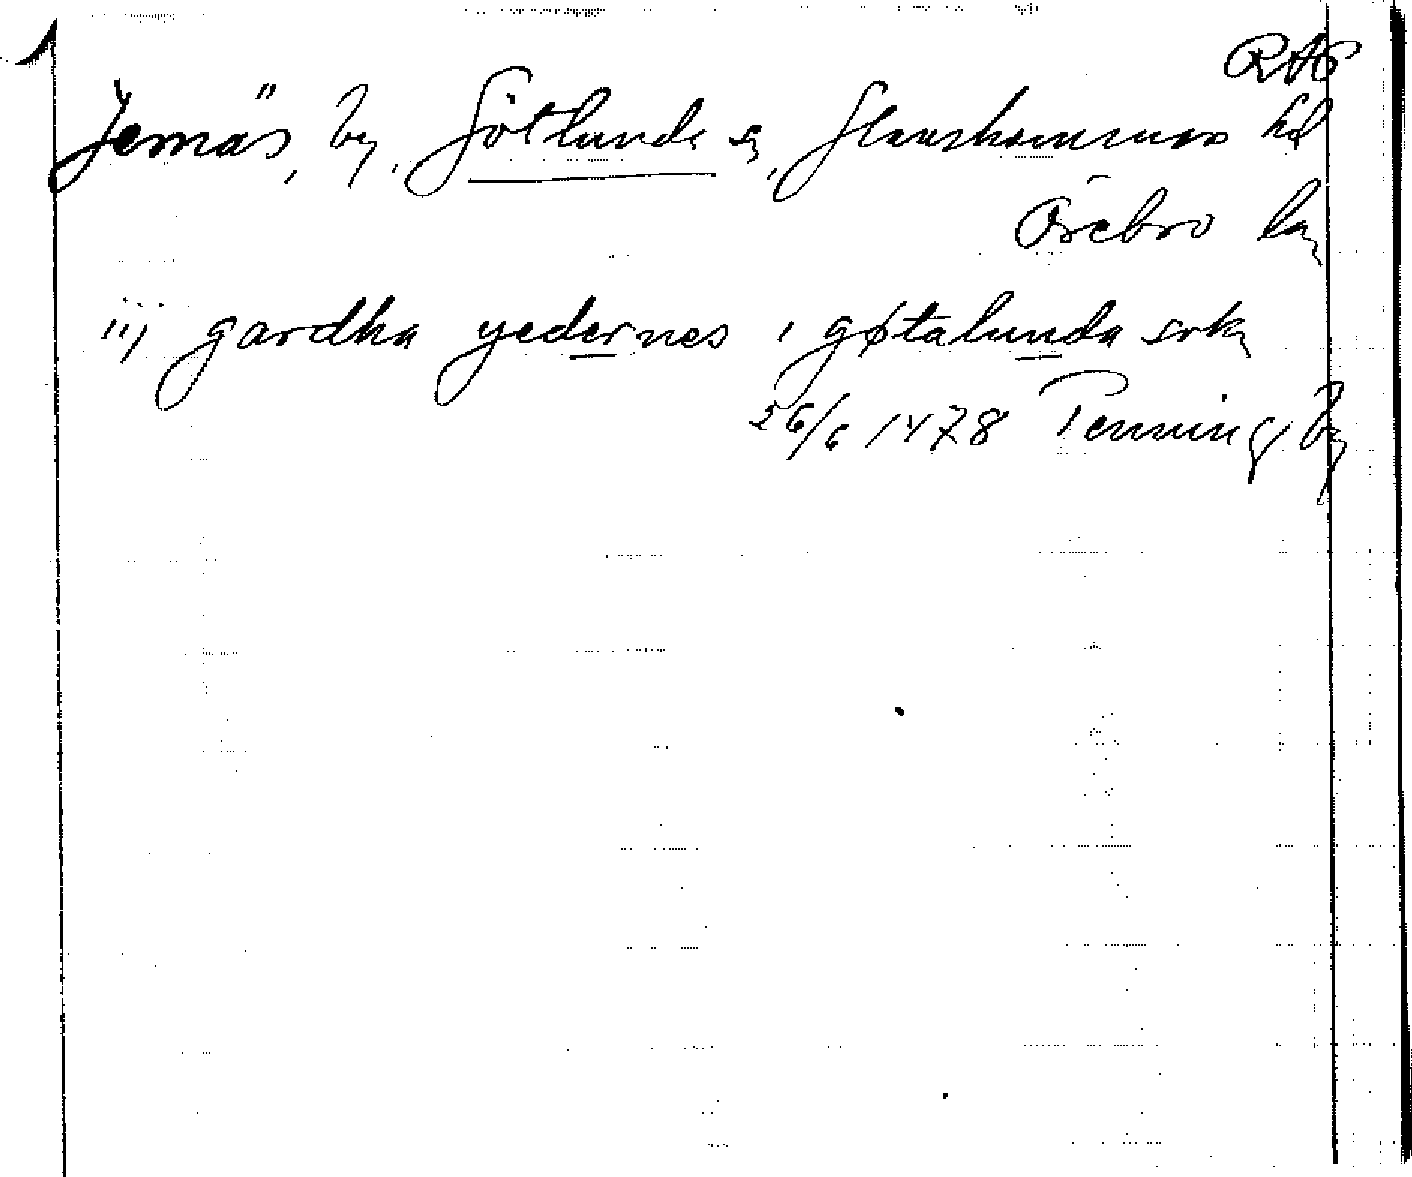 RAP
Jemäs, by, Götlunda sn, Glanshammars hd
Örebro län
iij gardha yedernes i gøtalunda sokn
26/6 1478 Penningby